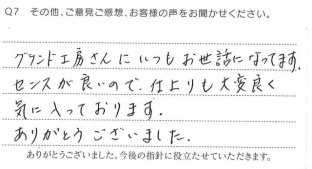 Q7 その他、ご意見ご感想、お客様の声をお聞かせください。
グランド工房さんにいつもお世話になってます。
センスが良いので、仕上りも大変良く
気に入っております。
ありがとうございました。
ありがとうございました。今後の指針に役立たせていただきます。